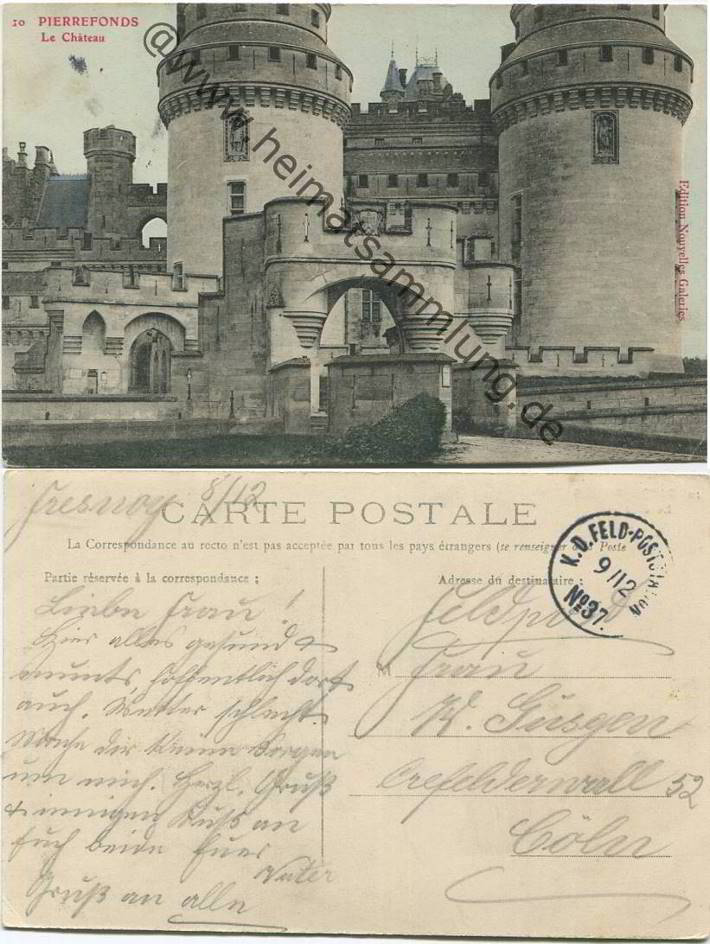 10 PIERREFONDS
Le Château
@www.heimatsammlung.de
Edition Nouvelles Galeries
Fresnoy 8/12
CARTE POSTALE
La Correspondance au recto n'est pas acceptée par tous les pays étrangers (se renseigner à la Poste
Partie réservée à la correspondance :
Liebe Frau!
Hier alles gesund &
munter, hoffentlich dort
auch. Wetter schlecht.
Mache dir keine Sorgen
um mich. Herzl. Gruß
& innigen Kuß an
Euch beide Euer
Vater
Gruß an alle
Adresse du destinataire :
K.D. FELD-POSTSTATION
9/12
No 37.
Feldpost
M Frau
W. Güsgen
Crefelderwall 52
Cöln